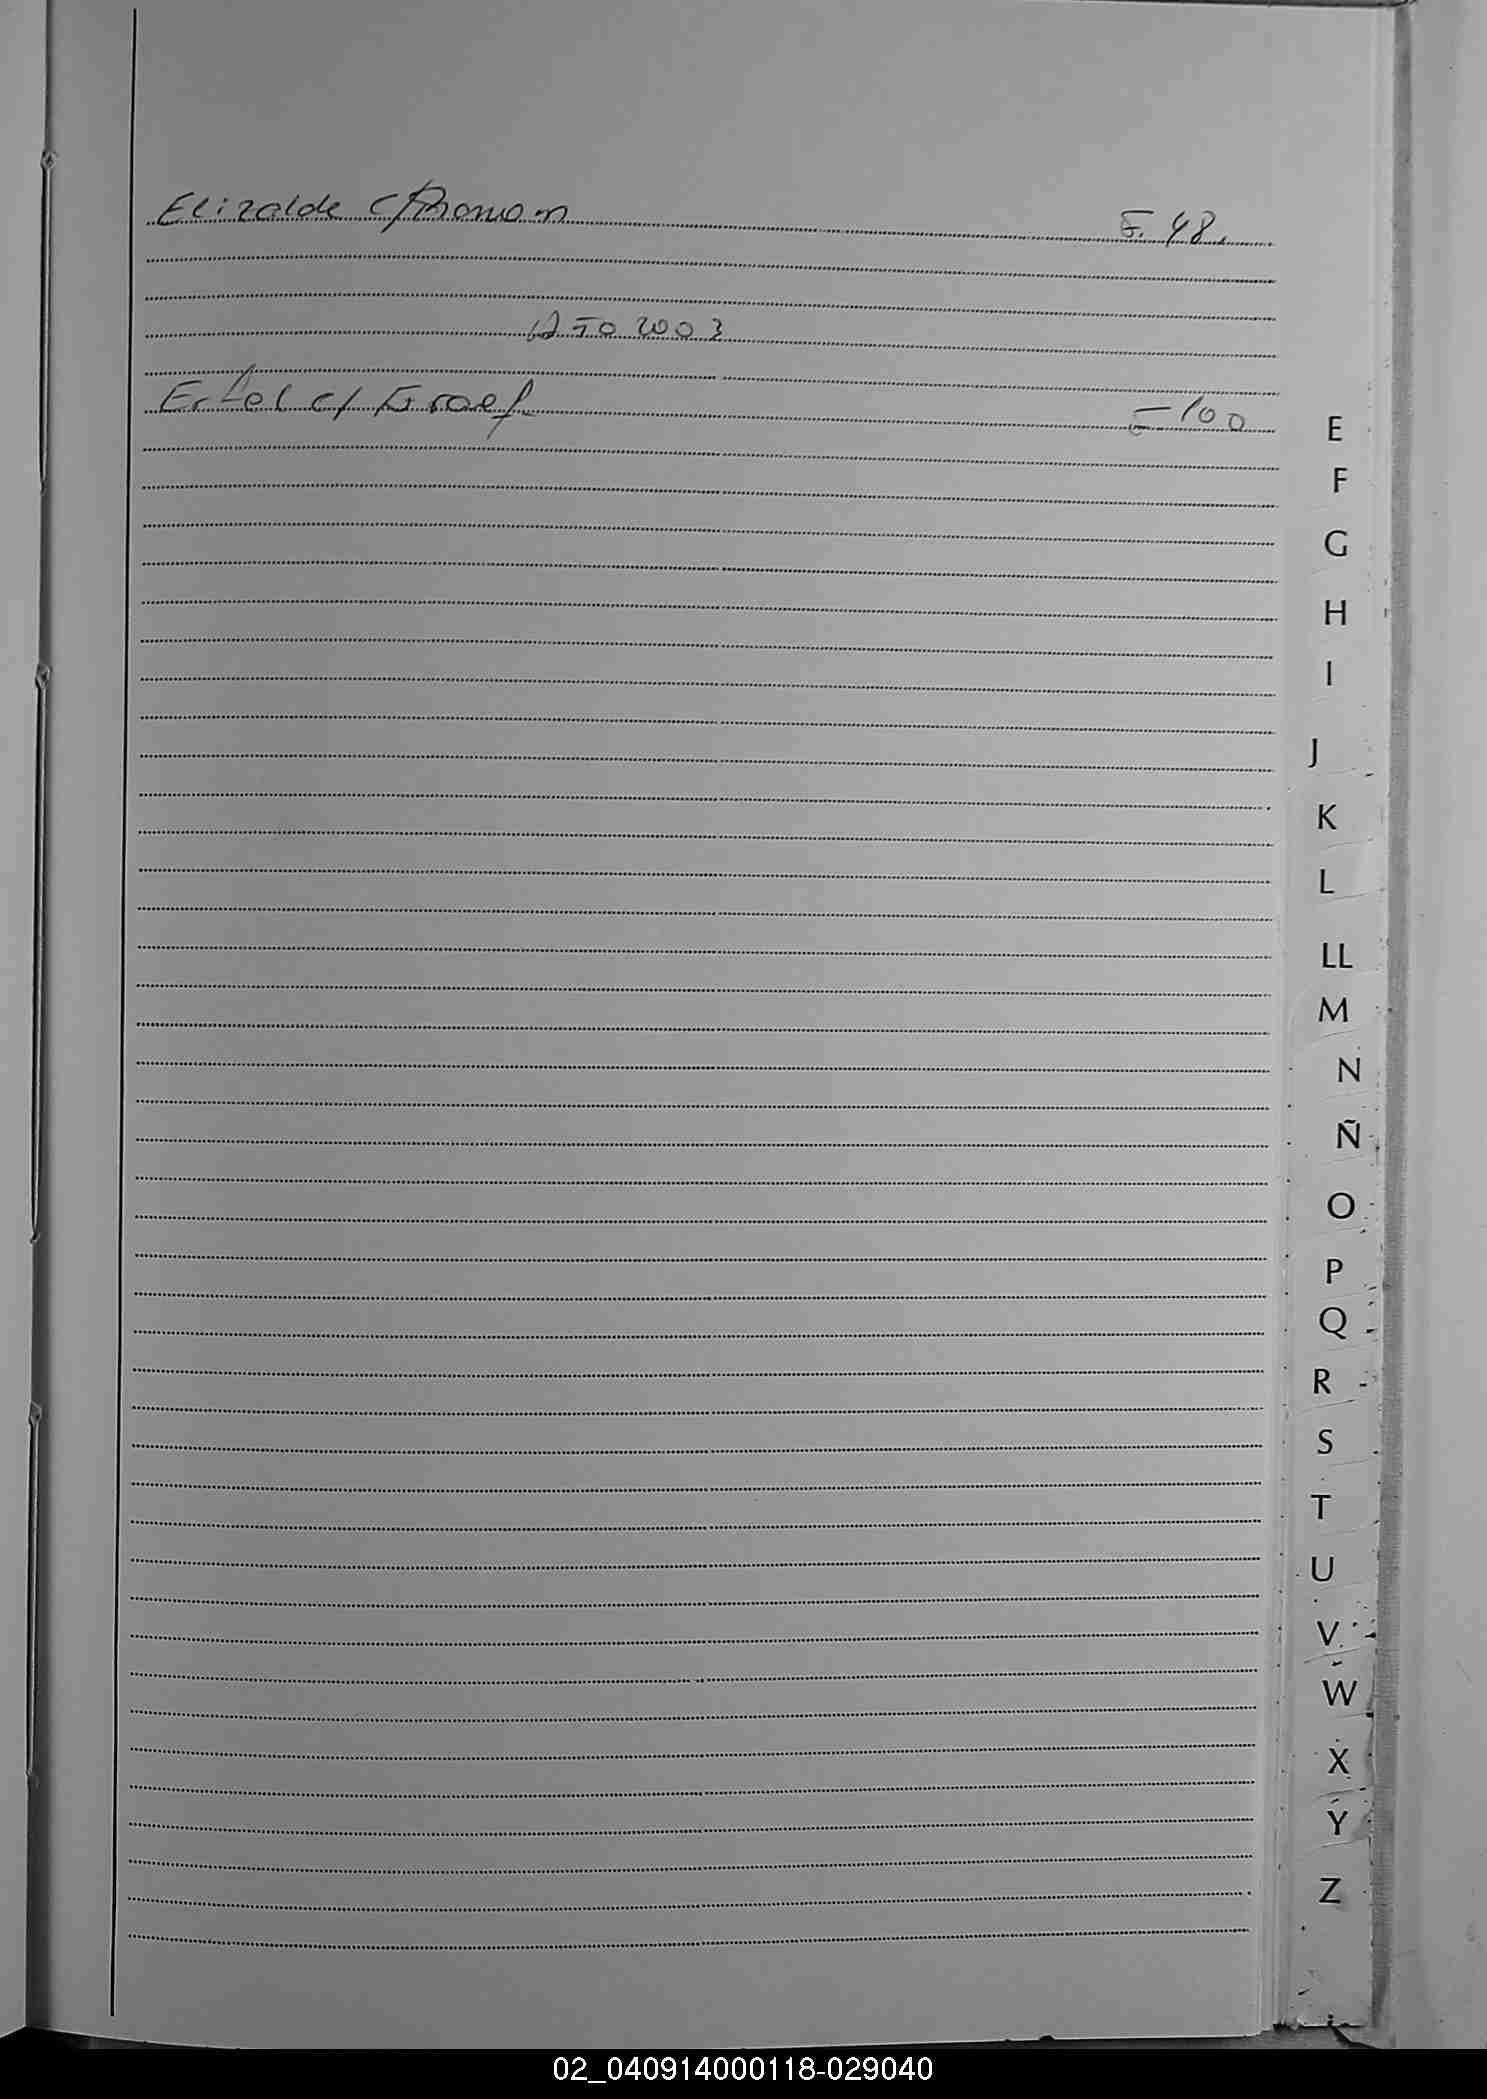 Elizalde c/ Roman F. 48.
Año 2003
Ertel c/ Graef F 100
E
F
G
H
I
J
K
L
LL
M
N
Ñ
O
P
Q
R
S
T
U
V
W
X
Y
Z
02_040914000118-029040